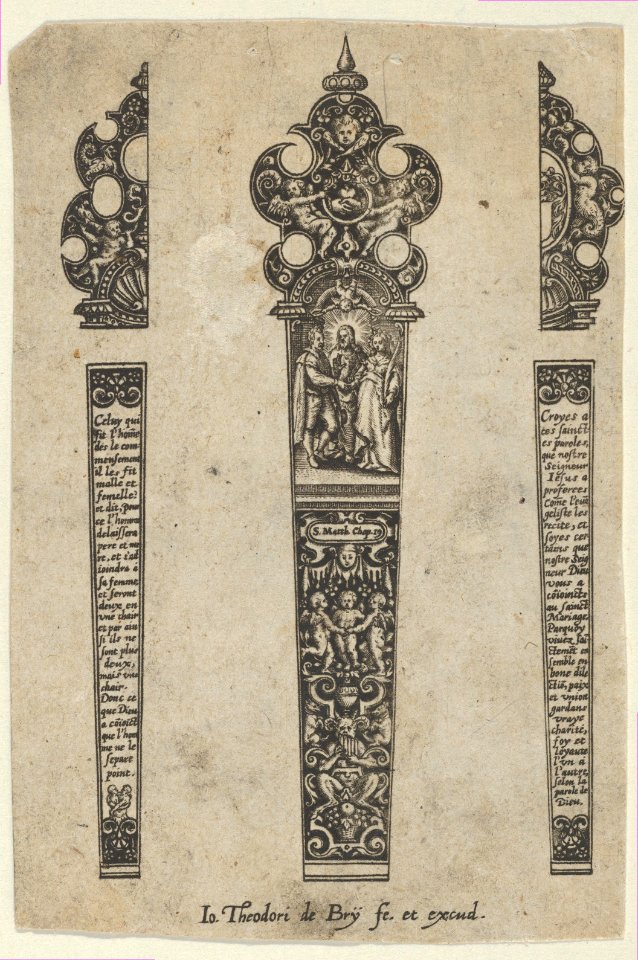 Celuy qui
fit l'hom̄e
des le com
mensement
il les fit
malle et
femelle?
et dit, pour
ce l'homme
delaissera
pere et me
re, et s'ad
ioindra à
sa femme
et seront
deux en
vne chair
et par ain
si ils ne
sont plus
deux,
mais vne
chair.
Donc ce
que Dieu
a cōioinct
que l'hom
me ne le
separe
point.
S. Matth. Chap. 19
Croyes a
ces sainct
es paroles,
que nostre
Seigneur
Iésus a
proferces
Come l'euā
geliste les
recite, et
soyes cer
tains que
nostre Seig
neur Dieu
vous a
cōioincts
au sainct
Mariage,
Parquoy
viuez saī
ctemēt en
semble en
bone dile
ctiō, paix
et vnion
gardans
vraye
charité,
foy et
loyaute
l'vn a
l'autre,
selon la
parole de
Dieu.
Io. Theodori de Brÿ fe. et excud.